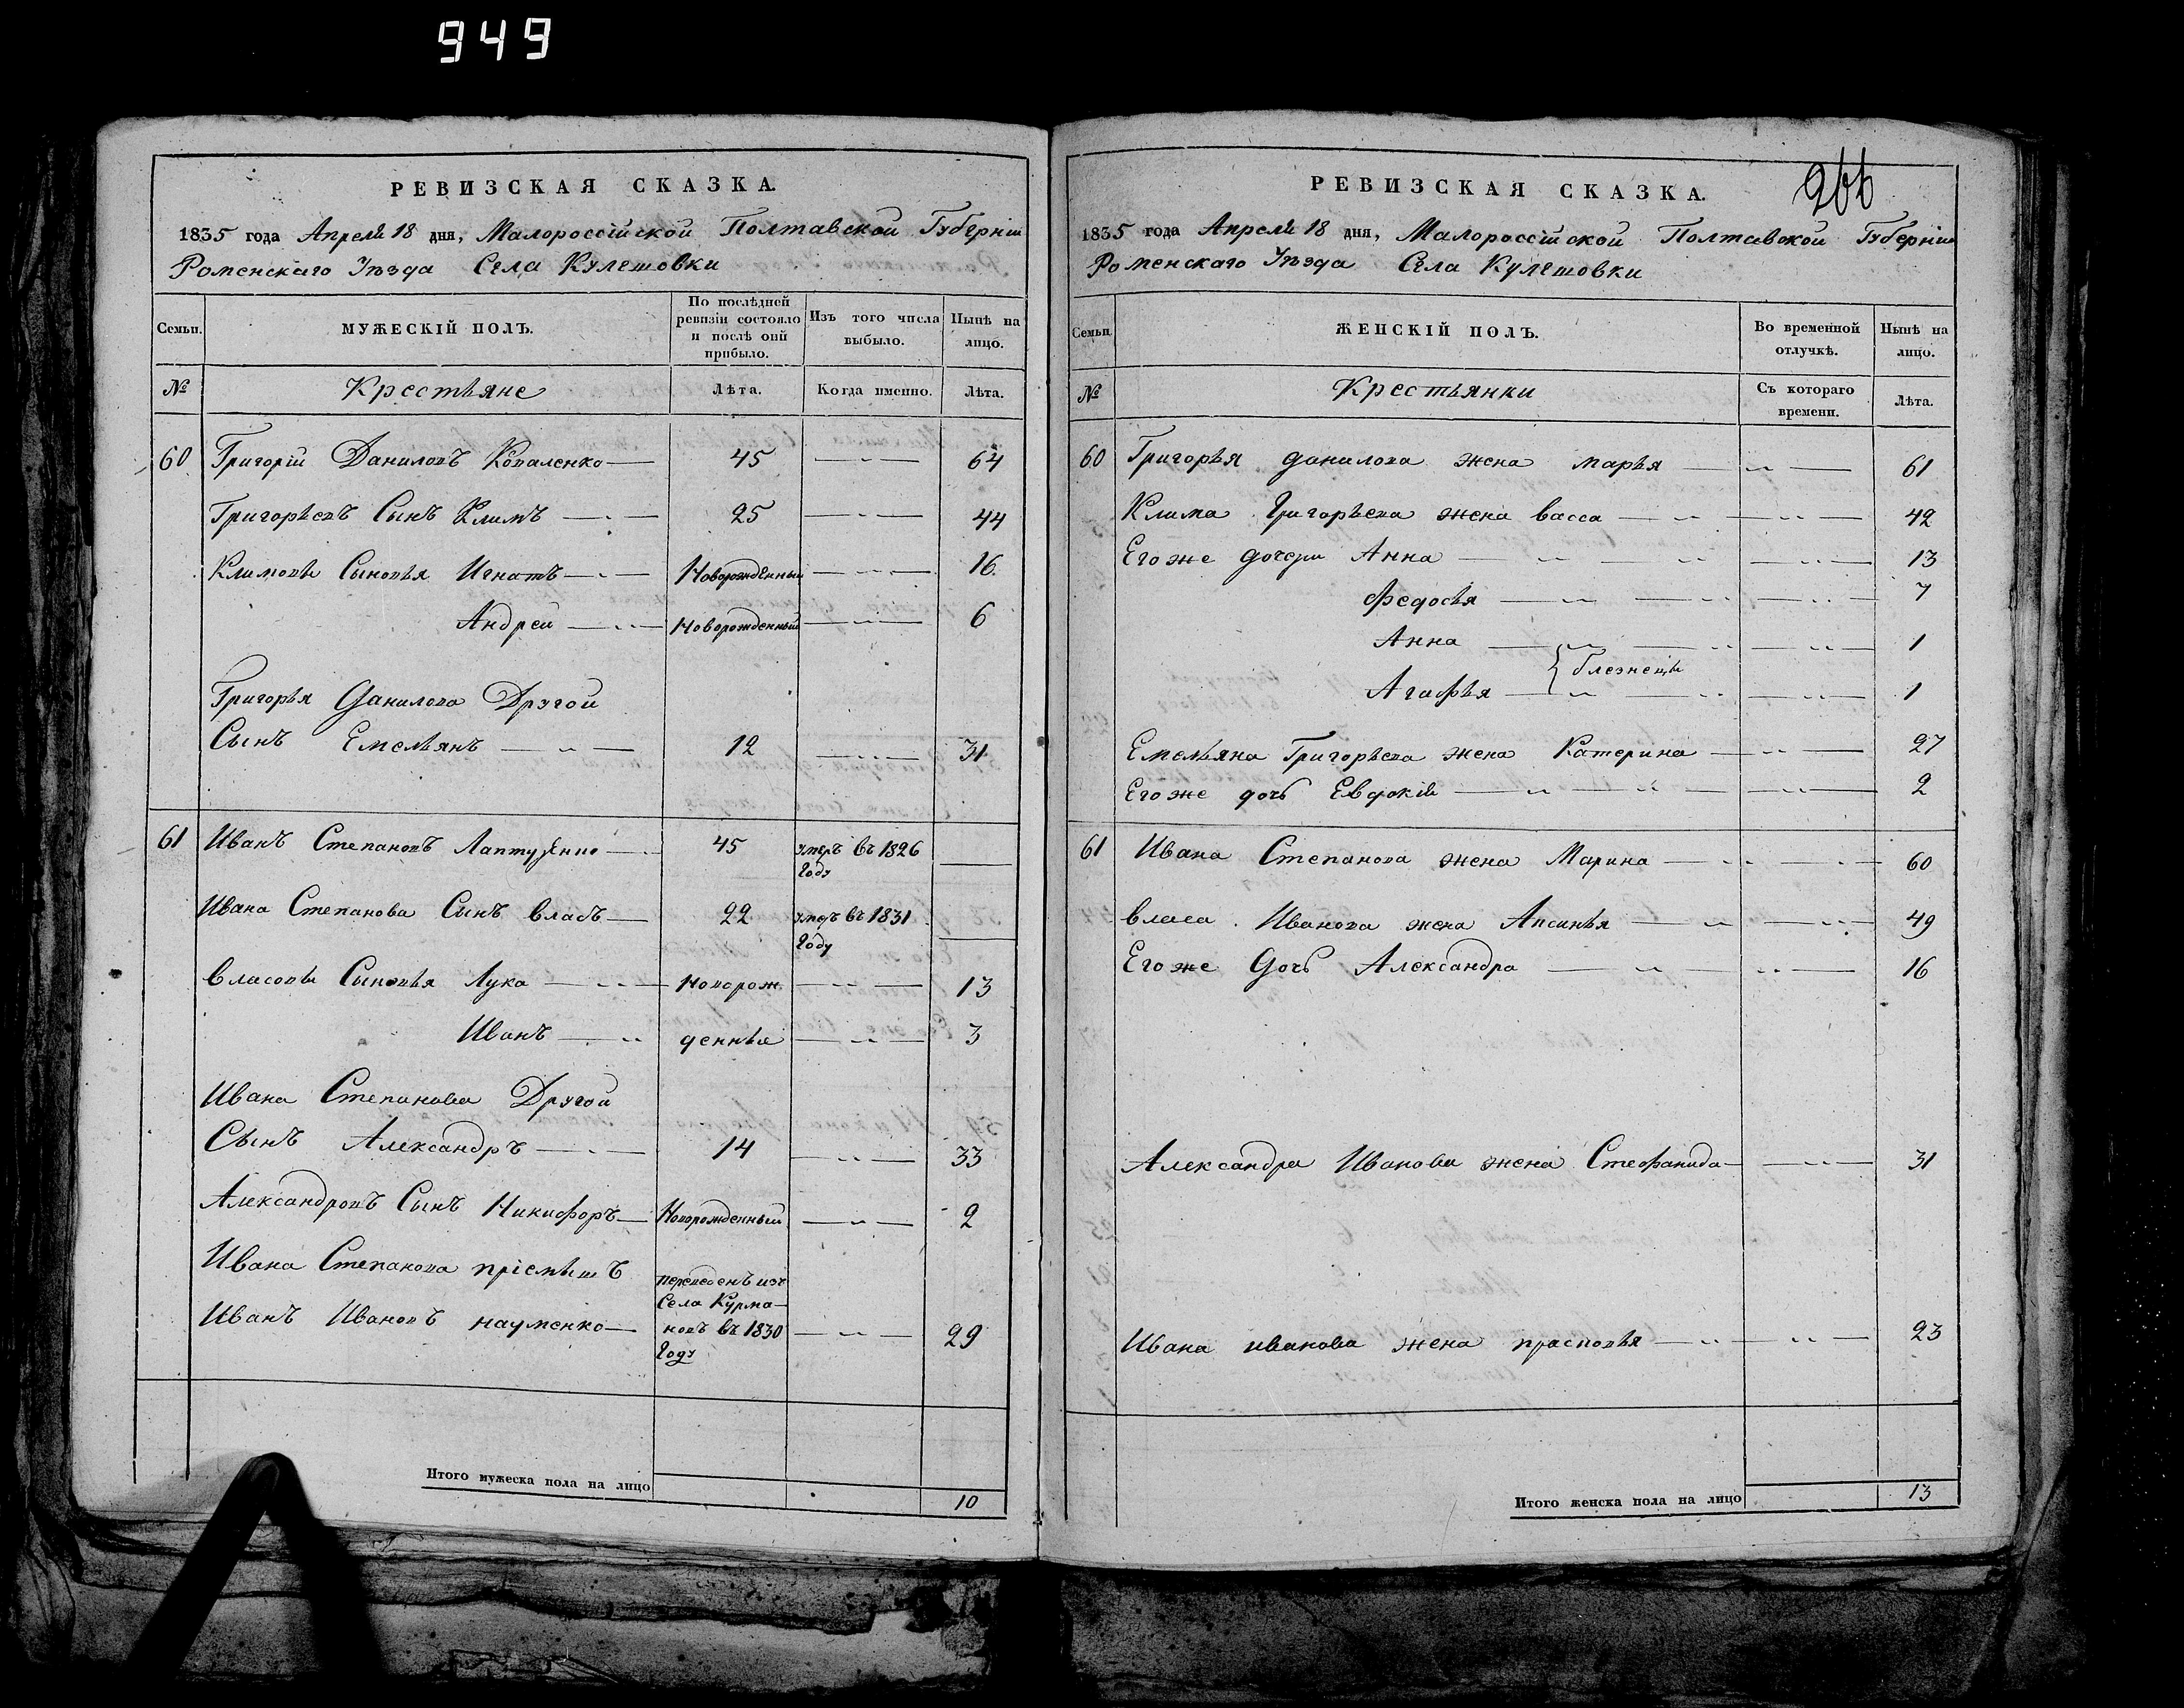 949
РЕВИЗСКАЯ СКАЗКА.
1835 года Апреля 18 дня, Малороссійской Полтавской Губерніи
Роменскаго Уѣзда Села Кулешовки
Семьи.
МУЖЕСКІЙ ПОЛЪ.
По послѣдней ревизіи состояло и послѣ оній прибыло.
Изъ того числа выбыло.
Нынѣ на лицо.
№
Крестьяне
Лѣта.
Когда именно.
Лѣта.
60 Григорій Даниловъ Коваленко 45 64
Григорьевъ Сынъ Климъ 25 44
Климовы Сыновья Игнатъ Новорожденный 16
Андрей Новорожденный 6
Григорья Данилова Другой
Сынъ Емельянъ 12 31
61 Иванъ Степановъ 45 умеръ въ 1826
Году
Ивана Степанова Сынъ Власъ 22 умеръ въ 1831
Году
Власовы Сыновья Лука Новорож 13
Иванъ денные 3
Ивана Степанова Другой
Сынъ Александръ 14 33
Александровъ Сынъ Никифоръ Новорожденный 2
Ивана Степанова пріемышъ переведенъ изъ
Села Курма-
Иванъ Ивановъ науменко новъ въ 1830 29
Году
Итого мужеска пола на лицо 10
266
РЕВИЗСКАЯ СКАЗКА.
1835 года Апреля 18 дня, Малороссійской Полтавской Губерніи
Роменскаго Уѣзда Села Кулешовки
Семьи
ЖЕНСКІЙ ПОЛЪ.
Во временной отлучкѣ.
Нынѣ на лицо.
№
Крестьянки
Съ котораго времени.
Лѣта.
60 Григорья данилова жена марья 61
Клима Григорьева жена васса 42
Его же дочери Анна 13
Федосья 7
Анна 1
близнецы
Агафья 1
Емельяна Григорьева жена Катерина 27
Его же дочь Евдокія 2
61 Ивана Степанова жена Марина 60
власа Иванова жена Аксинья 49
Его же Дочь Александра 16
Александра Иванова жена Стефанида 31
Ивана иванова жена прасковья 23
Итого женска пола на лицо 13